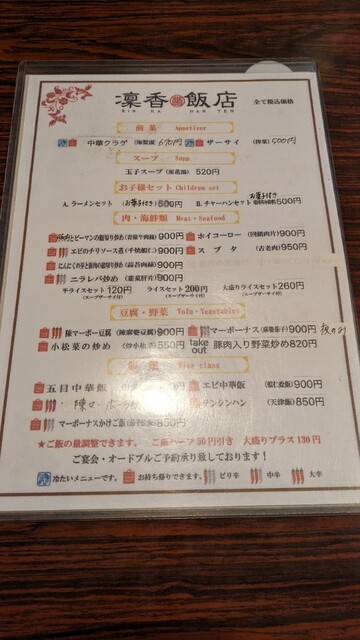 凛香飯店 全て税込価格
RIN KA HAN TEN
前菜 Appetizer
中華クラゲ (海蜇頭) 670円 ザーサイ (搾菜) 500円
スープ Soup
玉子スープ (蛋花湯) 520円
お子様セット Children set
A. ラーメンセット (お菓子付き) 500円 B. チャーハンセット お菓子付き 500円
肉・海鮮類 Meat・Seafood
豚肉とピーマンの細切り炒め (青椒牛肉絲) 900円 ホイコーロー (回鍋肉片) 900円
エビのチリソース煮 (干焼蝦仁) 900円 スブタ (古老肉) 950円
にんにくの芽と豚肉の細切り炒め (蒜苔肉絲) 900円
ニラレバ炒め (韮菜肝片) 900円
半ライスセット 120円 ライスセット 200円 大盛りライスセット 260円
(スープザーサイ付) (スープザーサイ付) (スープザーサイ付)
豆腐・野菜 Tofu・Vegetables
陳マーボー豆腐 (陳麻婆豆腐) 900円 マーボーナス (麻婆茄子) 900円 夜のみ
小松菜の炒め (炒小松菜) 550円 take out 豚肉入り野菜炒め 820円
飯類 Rice class
五目中華飯 900円 エビ中華飯 (蝦仁燴飯) 900円
陳マーボー テンシンハン (天津飯) 850円
マーボーナスかけご飯 850円
★ご飯の量調整できます。 ご飯ハーフ50円引き 大盛りプラス130円
ご宴会・オードブルご予約承り致しております!
冷たいメニューです。 お持ち帰りできます。 ピリ辛 中辛 大辛